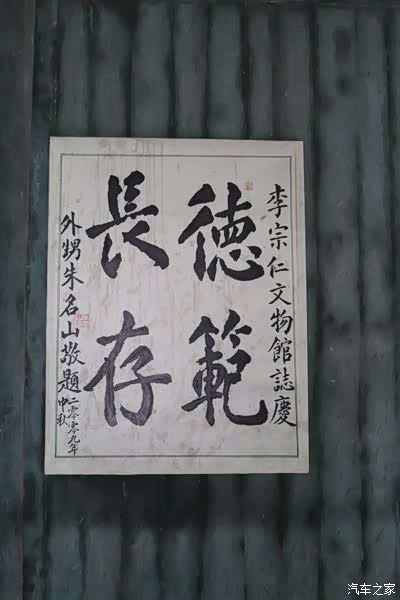 李宗仁文物館誌慶
德範
長存
外甥朱名山敬題
二零零九年
中秋
汽车之家